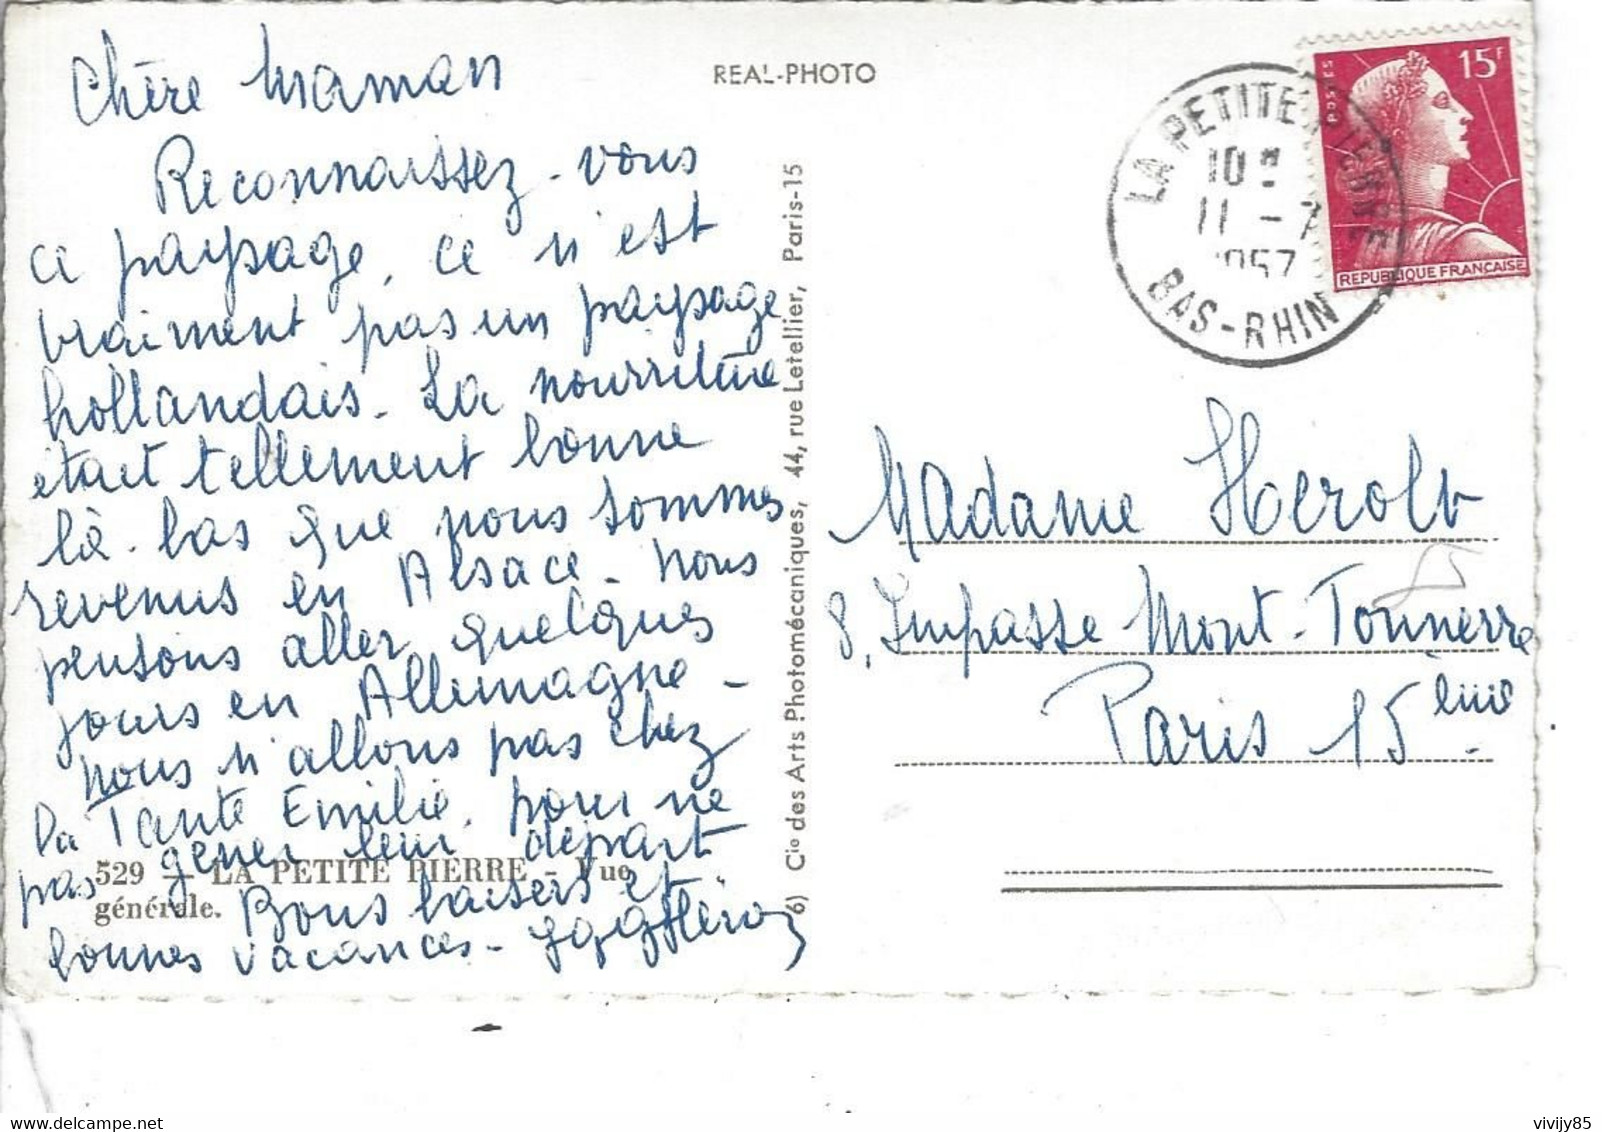 Chère Maman
Reconnaissez-vous
ce paysage, ce n'est
vraiment pas un paysage
hollandais. La nourriture
était tellement bonne
là-bas que nous sommes
revenus en Alsace. Nous
pensons aller quelques
jours en Allemagne -
nous n'allons pas chez
la Tante Emilie, pour ne
pas gêner leur départ
Bons baisers et
bonnes vacances -
529 - LA PETITE PIERRE - Vue
générale.
REAL-PHOTO
6) Cie des Arts Photomécaniques, 44, rue Letellier, Paris-15
LA PETITE PIERRE
10
11 - 7
1957
BAS-RHIN
POSTES
15F
REPUBLIQUE FRANÇAISE
Madame Herolt
8, Impasse Mont-Tonnerre
Paris 15ème
vivijy85